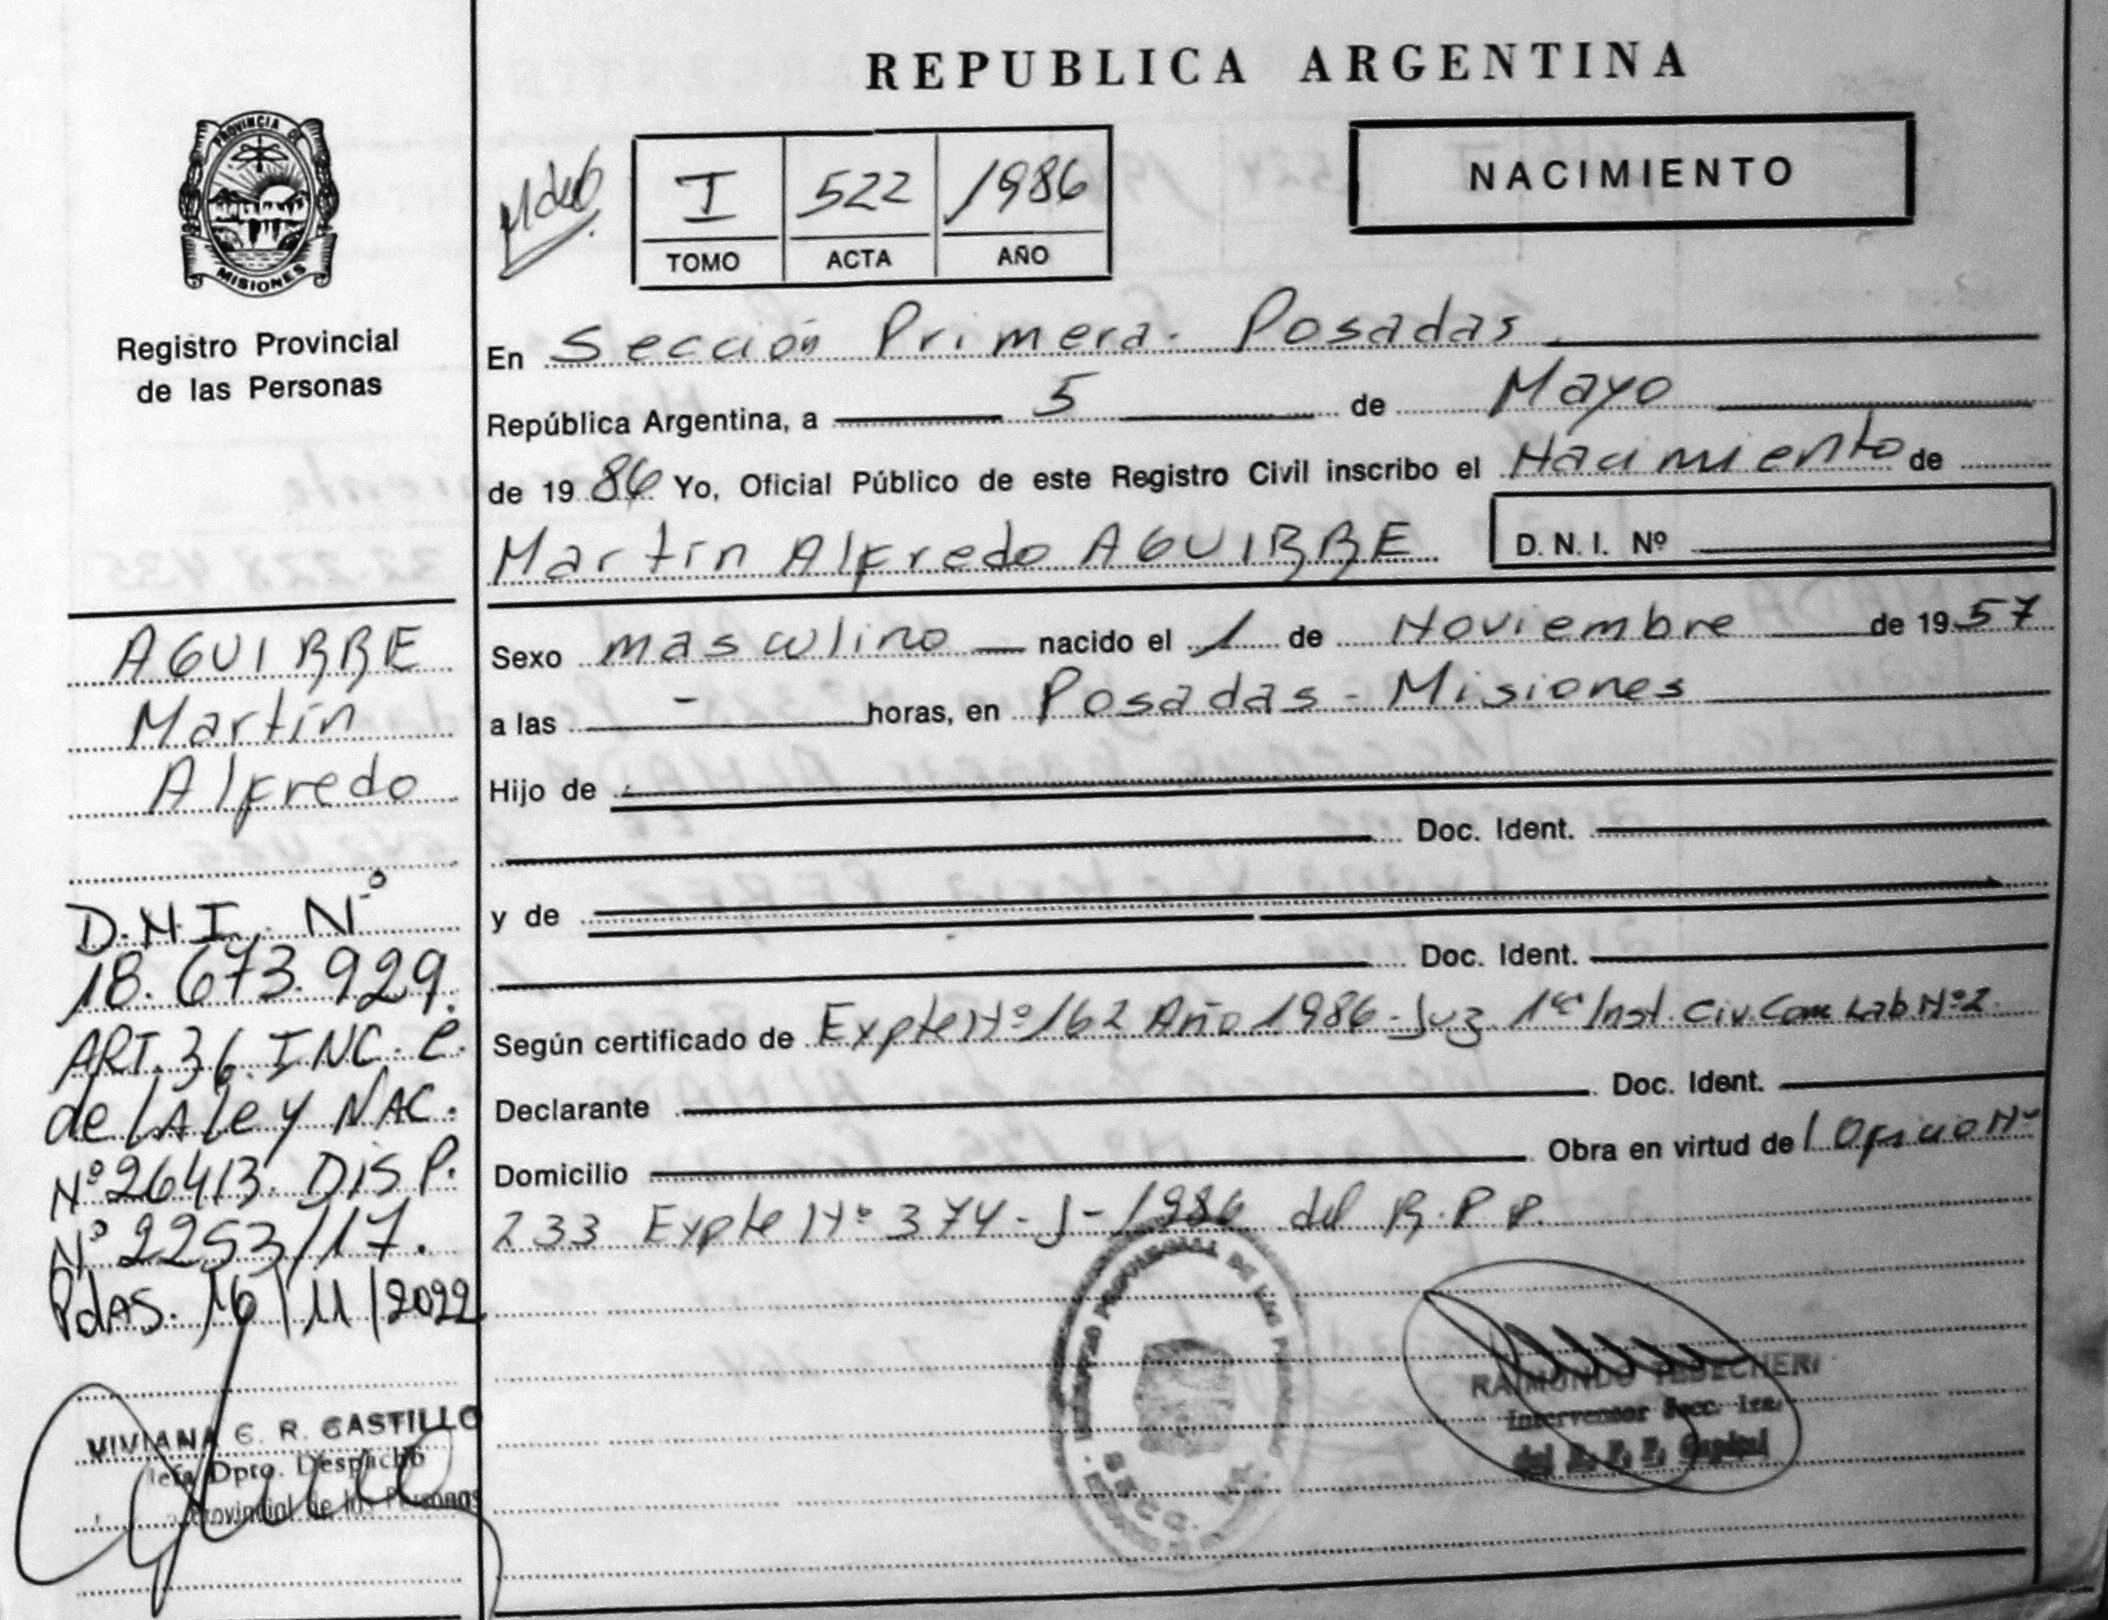 REPUBLICA ARGENTINA
PROVINCIA DE
MISIONES
Registro Provincial
de las Personas
I 522 1986
TOMO ACTA AÑO
NACIMIENTO
En Sección Primera. Posadas
República Argentina, a 5 de Mayo
de 1986 Yo, Oficial Público de este Registro Civil inscribo el Nacimiento de
Martín Alfredo AGUIRRE D. N. I. Nº
Sexo masculino nacido el 1 de Noviembre de 1957
a las - horas, en Posadas - Misiones
Hijo de
Doc. Ident.
y de
Doc. Ident.
Según certificado de Expte Nº 162 Año 1986 - Juz. 1ª Inst. Civ. Com Lab Nº 2
Declarante Doc. Ident.
Domicilio Obra en virtud del Oficio Nº
233 Expte Nº 374-J-1986 del R.P.P.
AGUIRRE
Martín
Alfredo
D.N.I. Nº
18.673.929.
ART. 36. INC. C.
de LA ley NAC.
Nº 26413. DISP.
Nº 2253/17.
PdAS. 16/11/2022
VIVIANA C. R. CASTILLO
Jefa Dpto. Despacho
Provincial de las Personas
REGISTRO PROVINCIAL DE LAS PERSONAS
SECC.
RAIMUNDO TEDECHERI
Interventor Secc. 1ra.
del R. P. P. Capital